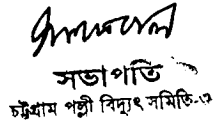 সভাপতি
চট্টগ্রাম পল্লী বিদ্যুৎ সমিতি-২